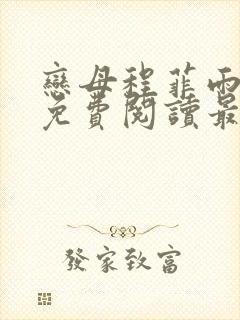 戀母程菲雨
免費閱讀最
發家致富